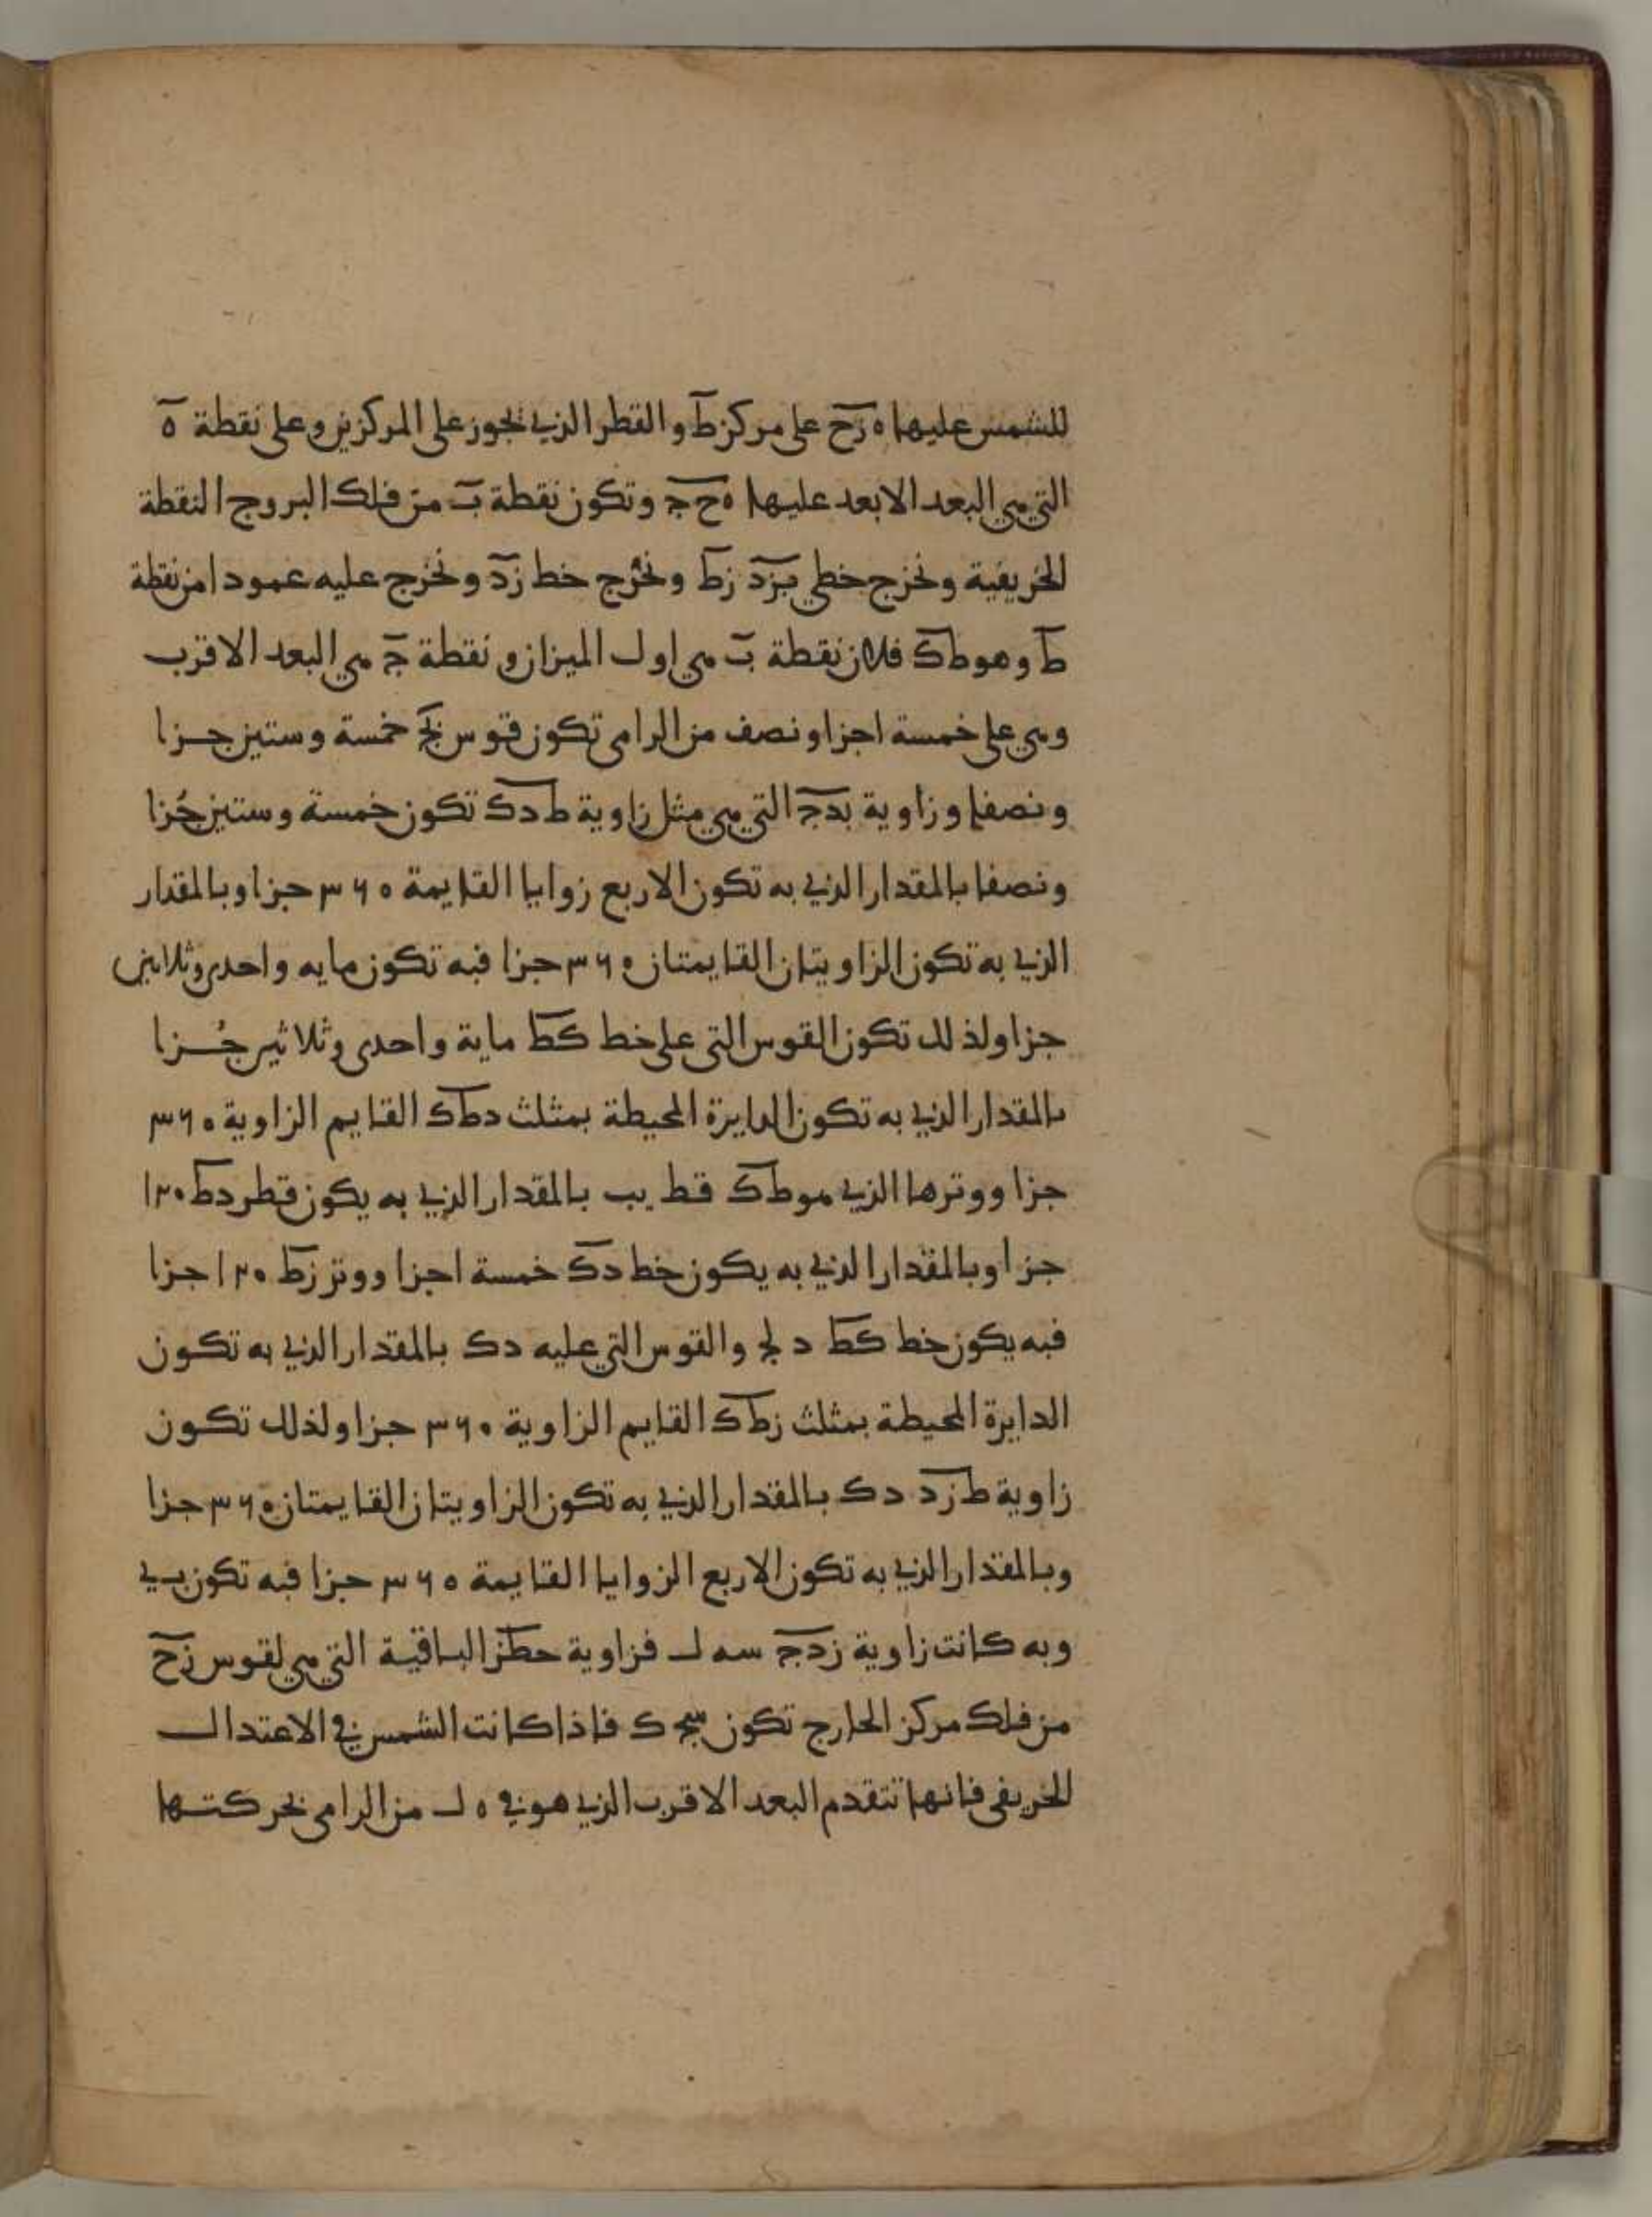 للشمس عليها ه زح على مركز ط والقطر الذي يجوز على المركزين وعلى نقطة ه
التي هي البعد الابعد عليها ه ح ج وتكون نقطة ب من فلك البروج النقطة
الخريفية ونخرج خطي بزد زط ونخرج خط زد ونخرج عليه عمودا من نقطة
ط وهو طك فلان نقطة ب هي اول الميزان ونقطة ج هي البعد الاقرب
وهي على خمسة اجزا ونصف من الرامي تكون قوس بج خمسة وستين جزا
ونصفا وزاوية بدج التي هي مثل زاوية ط دك تكون خمسة وستين جُزا
ونصفا بالمقدار الذي به تكون الاربع زوايا القايمة ۳۶۰ جزا وبالمقدار
الذي به تكون الزاويتان القايمتان ۳۶۰ جزا فبه تكون مايه واحدى وثلاثين
جزا ولذلك تكون القوس التي على خط كط ماية واحدى وثلاثين جُزا
بالمقدار الذي به تكون الدايرة المحيطة بمثلث دطك القايم الزاوية ۳۶۰
جزا ووترها الذي هو طك قط يب بالمقدار الذي به يكون قطر دط ۱۲۰
جزا وبالمقدار الذي به يكون خط دك خمسة اجزا ووتر زط ۱۲۰ جزا
فبه يكون خط كط د لج والقوس التي عليه دك بالمقدار الذي به تكون
الدايرة المحيطة بمثلث زطك القايم الزاوية ۳۶۰ جزا ولذلك تكون
زاوية ط زد دك بالمقدار الذي به تكون الزاويتان القايمتان ۳۶۰ جزا
وبالمقدار الذي به تكون الاربع الزوايا القايمة ۳۶۰ جزا فبه تكون ب ي
وبه كانت زاوية زدج سه ل فزاوية حطز الباقية التي هي لقوس زح
من فلك مركز الخارج تكون سج ك فاذا كانت الشمس في الاعتدال
الخريفي فانها تتقدم البعد الاقرب الذي هو في ه ل من الرامي بحركتها